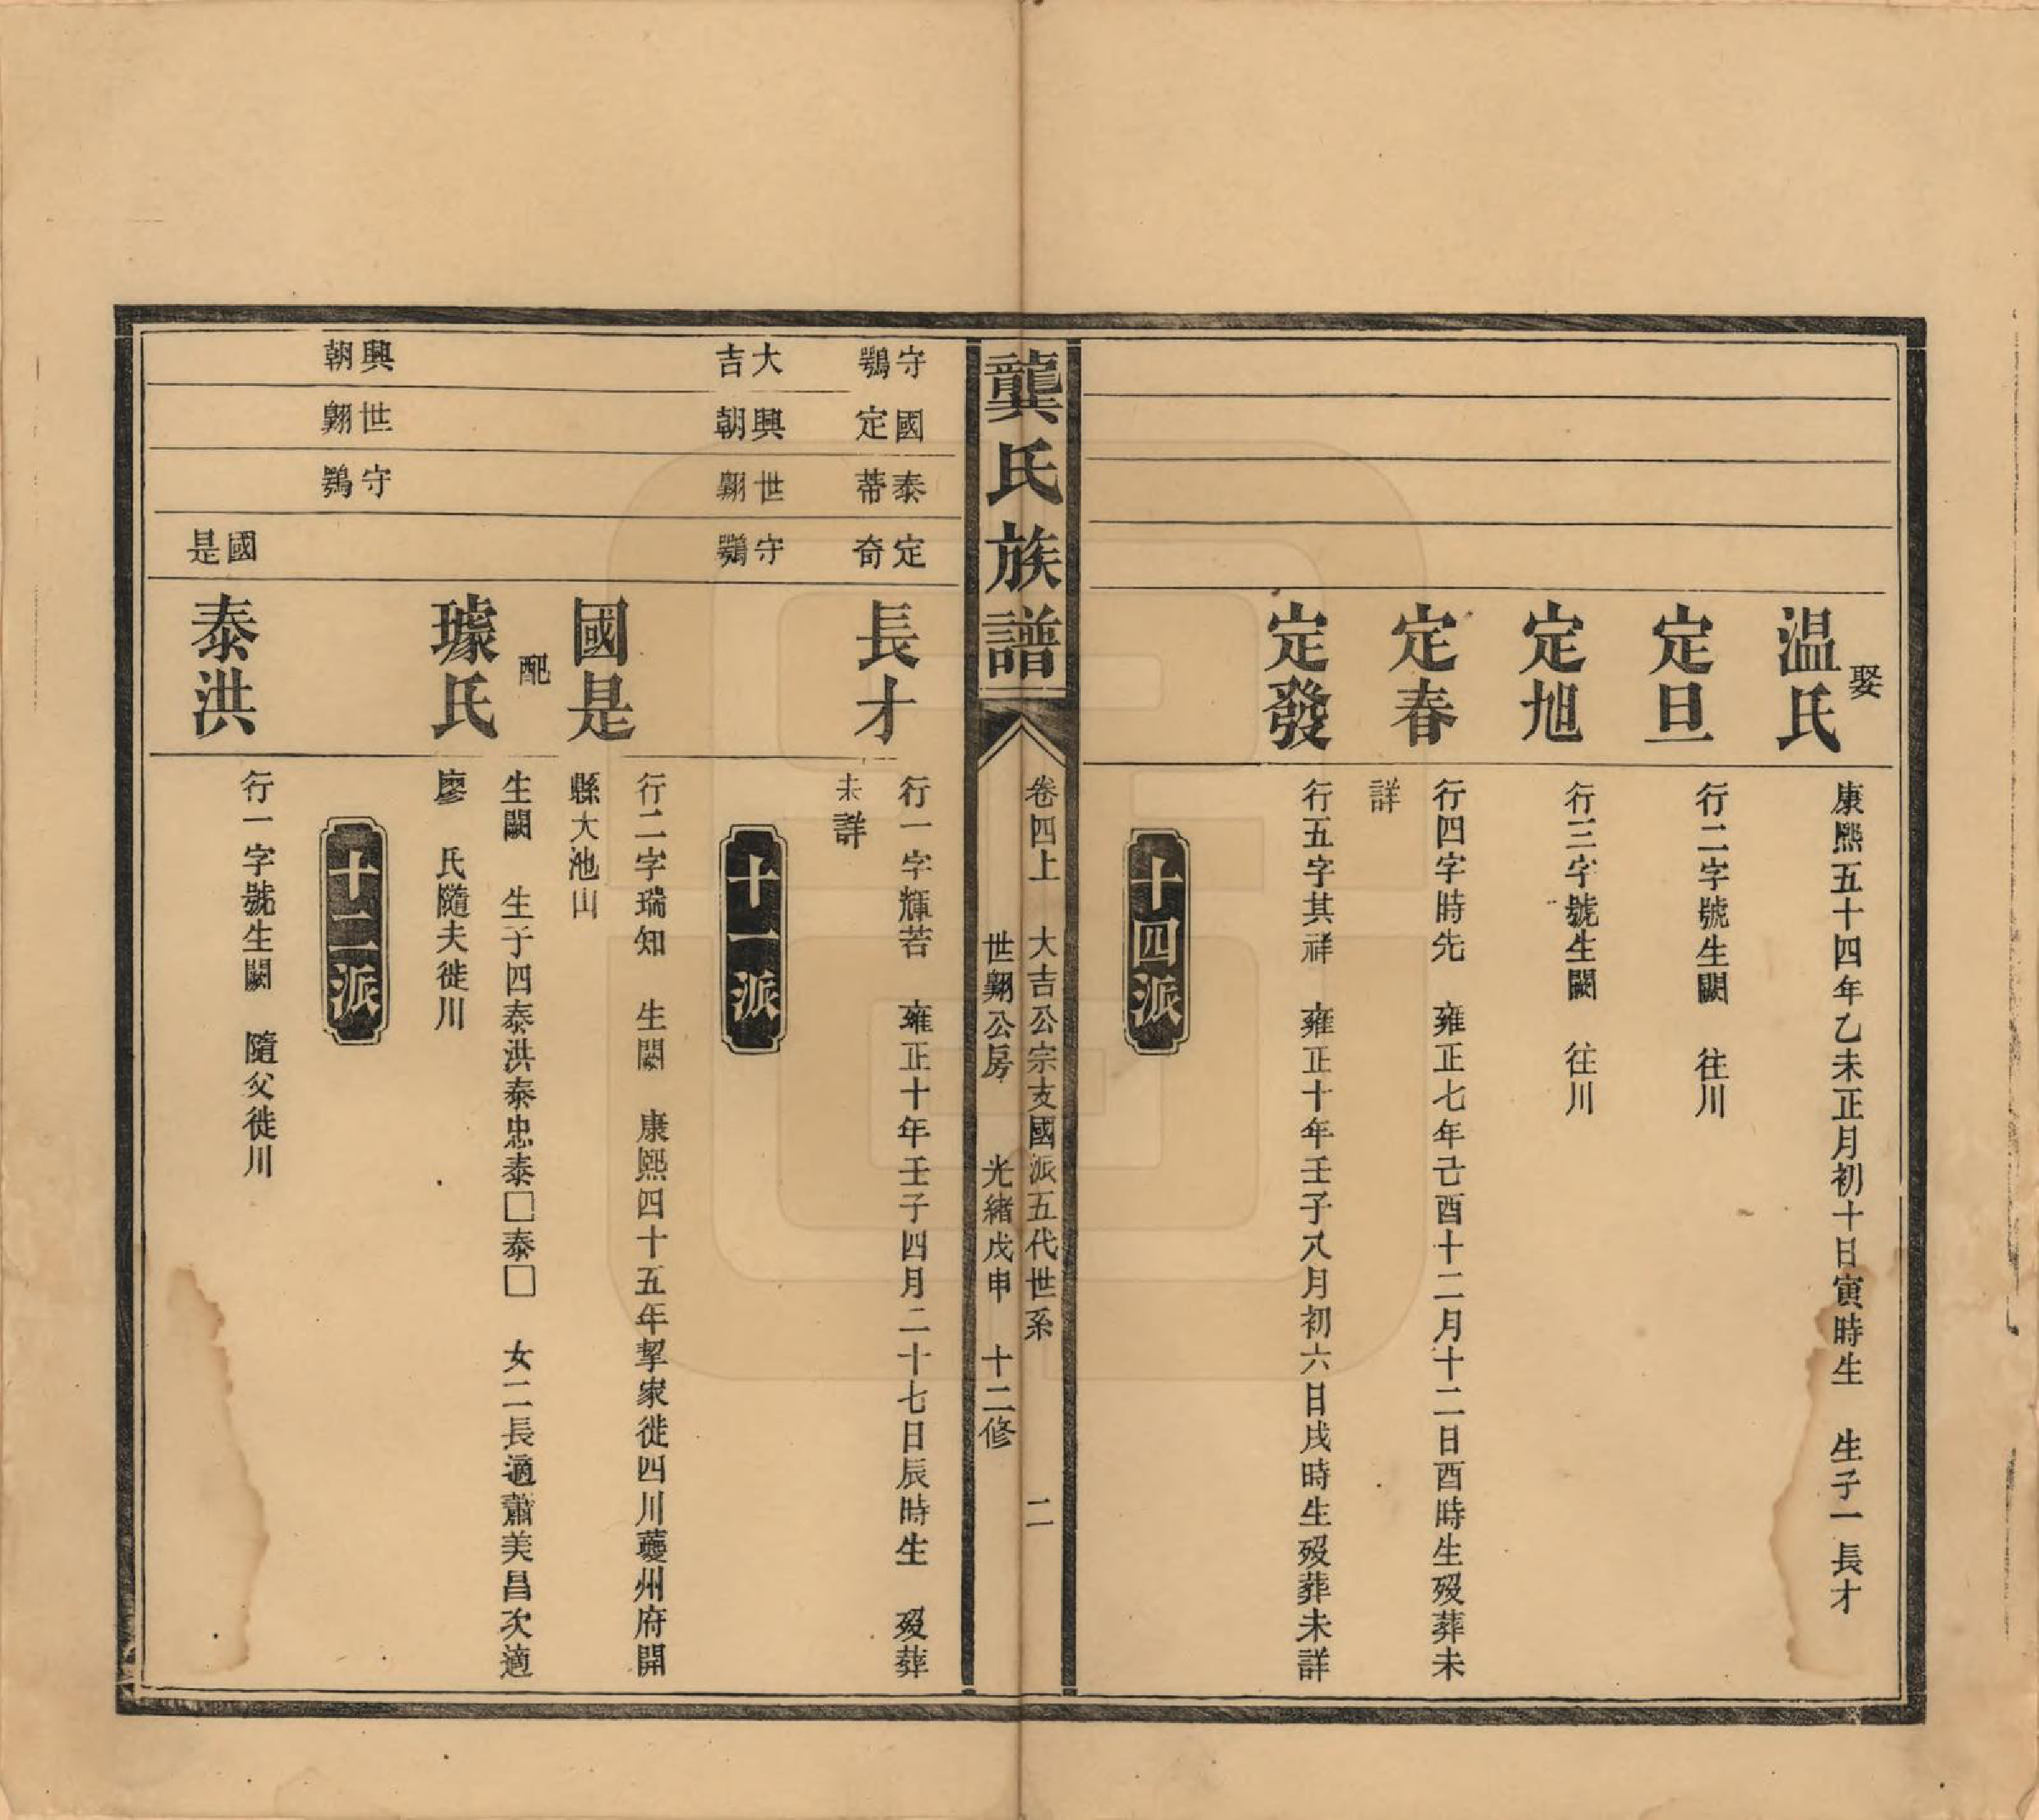 娶
温氏
康熙五十四年乙未正月初十日寅時生　生子一長才
定旦
行二字號生闕　往川
定旭
行三字號生闕　往川
定春
行四字時先　雍正七年己酉十二月十二日酉時生殁葬未
詳
定發
行五字其祥　雍正十年壬子八月初六日戌時生殁葬未詳
十四派
龔氏族譜
卷四上　大吉公宗支國派五代世系　二
世翺公房　光緒戊申　十二修
守鶚
國定
泰蒂
定奇
長才
行一字輝若　雍正十年壬子四月二十七日辰時生　殁葬
未詳
十一派
大吉
興朝
世翺
守鶚
國是
行二字瑞知　生闕　康熙四十五年挈家徙四川夔州府開
縣大池山
生闕　生子四泰洪泰忠泰□泰□　女二長適蕭美昌次適
配
璩氏
廖　氏隨夫徙川
十二派
興朝
世翺
守鶚
國是
泰洪
行一字號生闕　隨父徙川